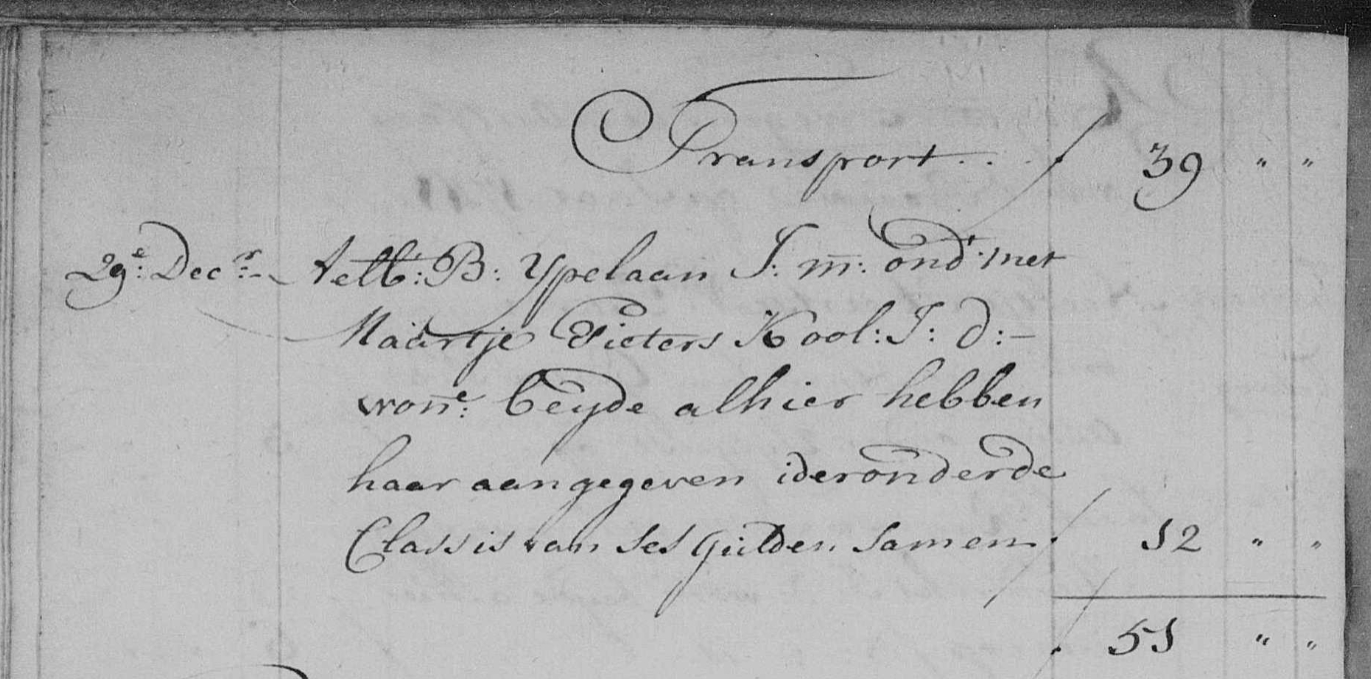 Transport . . 39 " "
29e: Decr: Aelb: B: Ypelaan J: m: ondr met
Maartje Pieters Kool: J: d: -
wone: beyde alhier hebben
haar aangegeven ider onder de
Classis van ses gulden samen 12 " "
51 " "